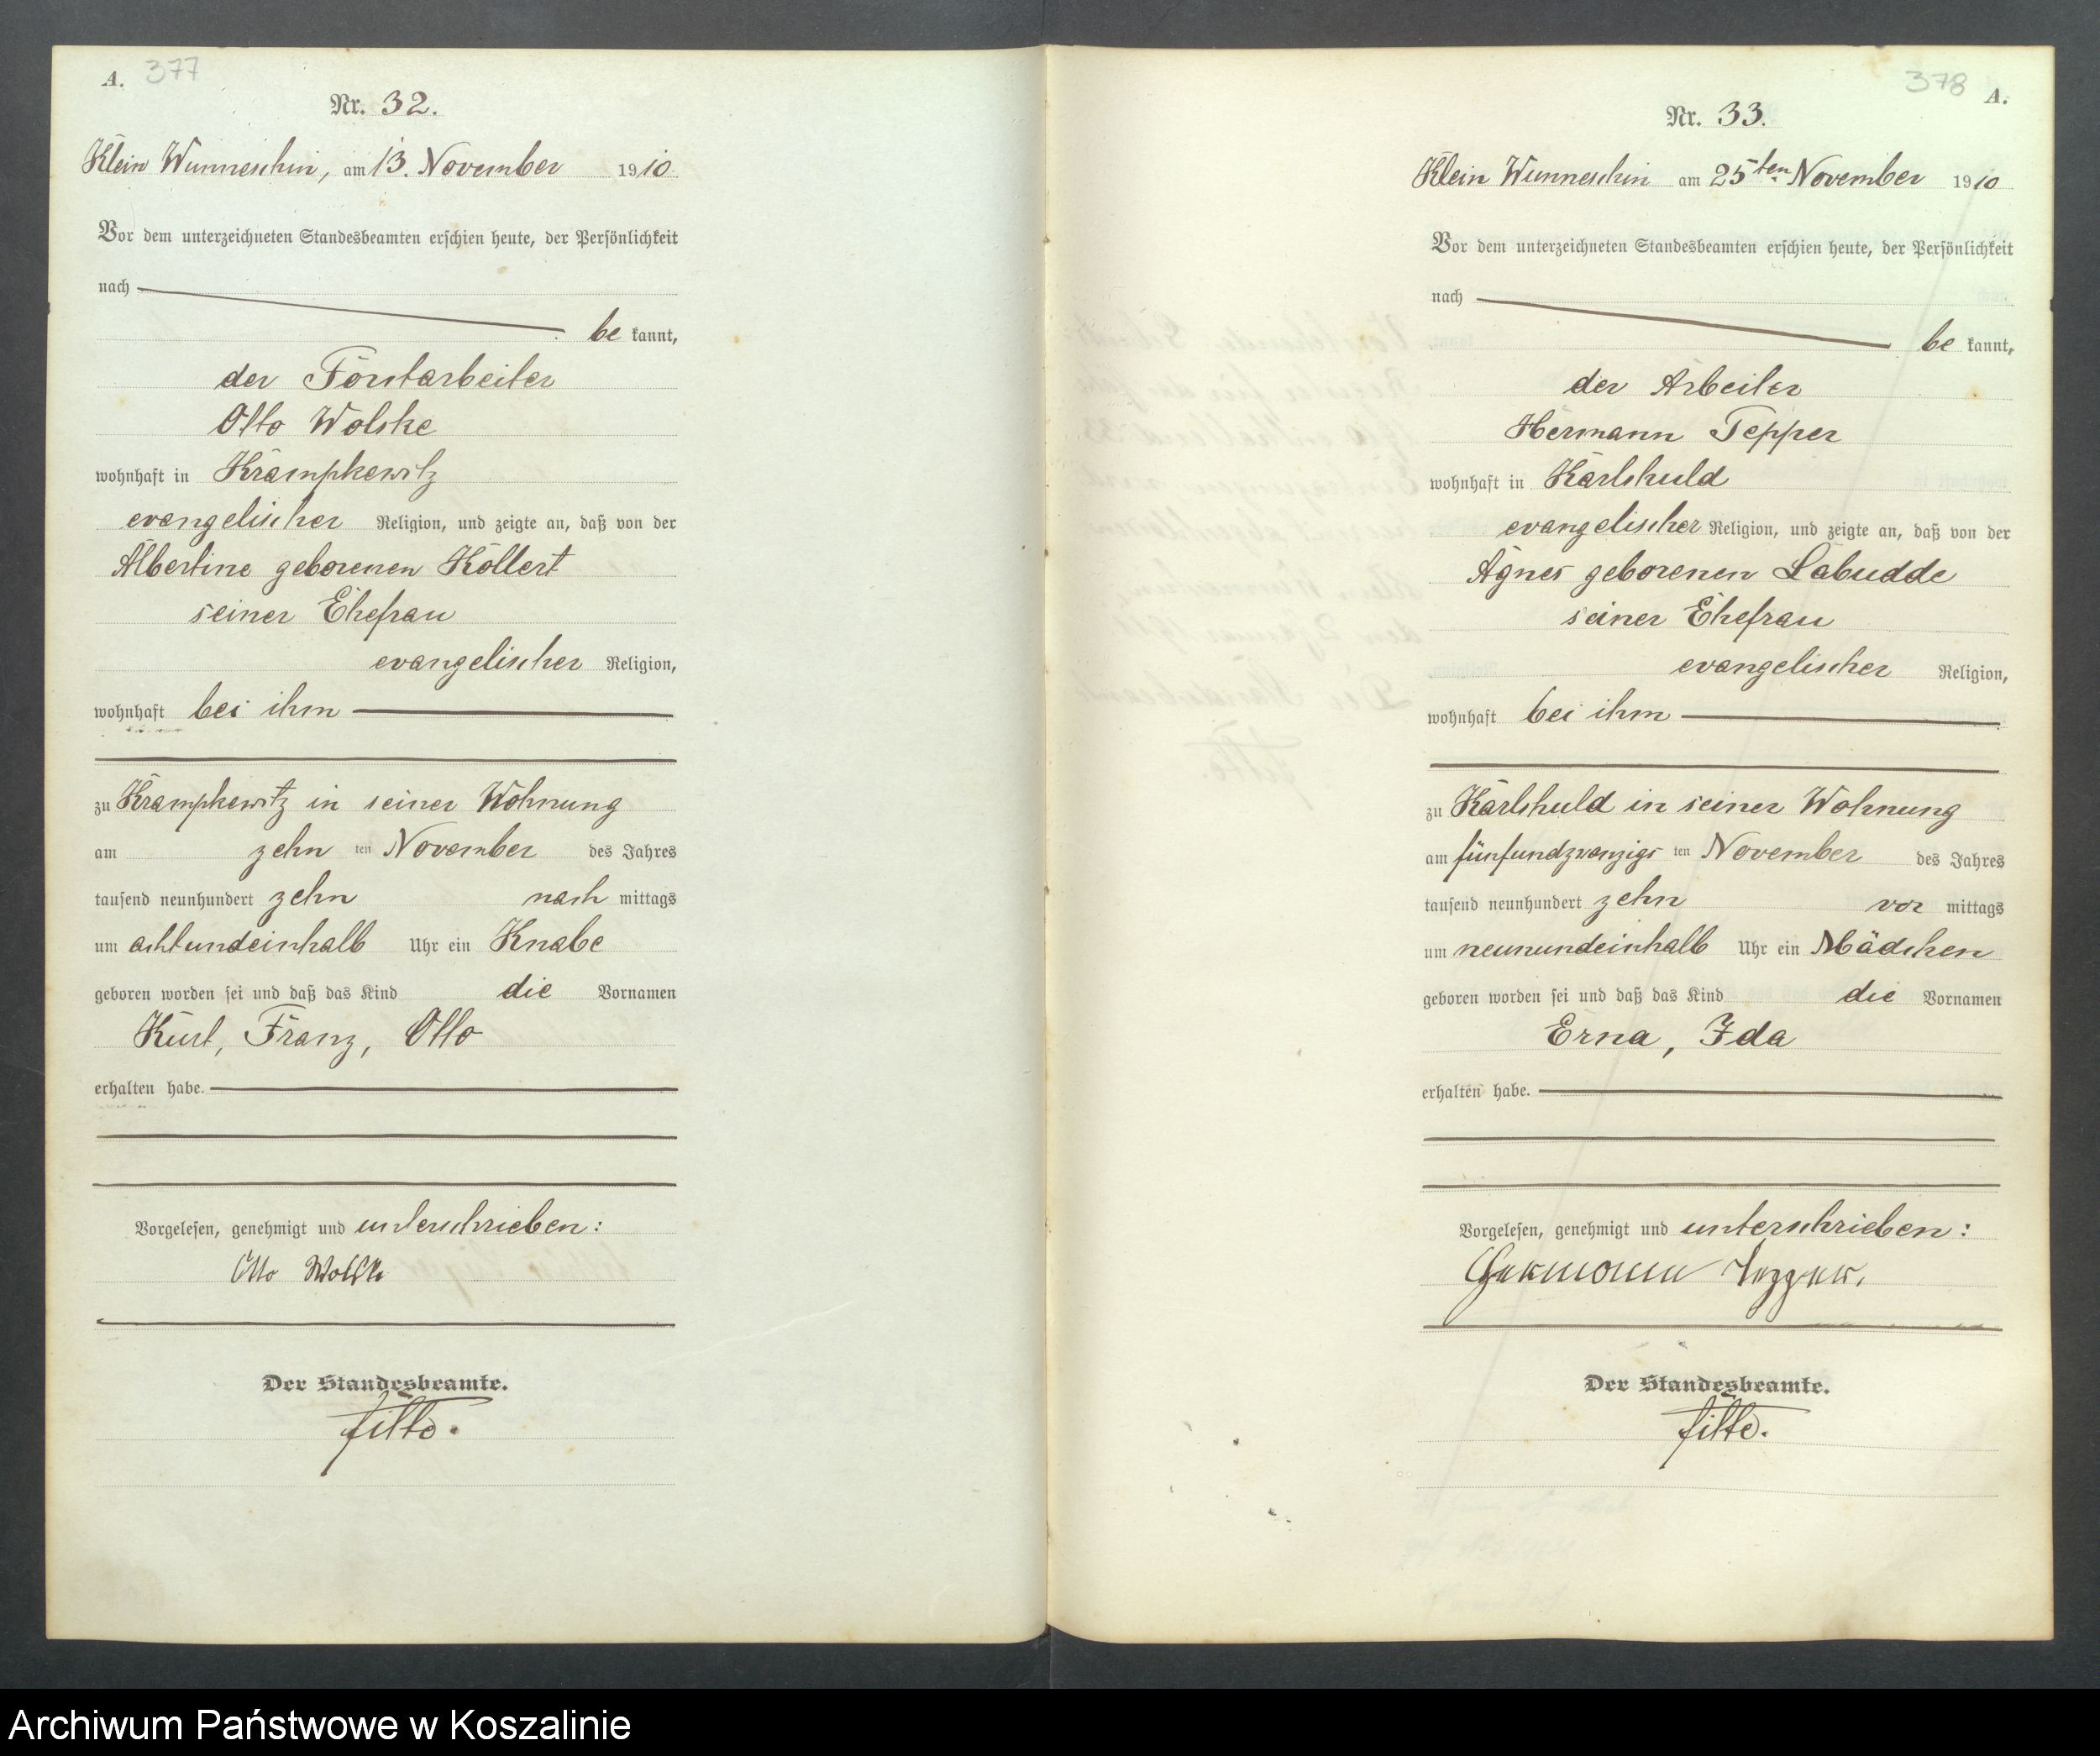 A. 377
Nr. 32.
Klein Wunneschin, am 13. November 1910.
Vor dem unterzeichneten Standesbeamten erschien heute, der Persönlichkeit
nach
be kannt,
der Forstarbeiter
Otto Wolske
wohnhaft in Krampkewitz
evangelischer Religion, und zeigte an, daß von der
Albertine geborenen Kollert
seiner Ehefrau
evangelischer Religion,
wohnhaft bei ihm
zu Krampkewitz in seiner Wohnung
am zehn ten November des Jahres
tausend neunhundert zehn nach mittags
um achtundeinhalb Uhr ein Knabe
geboren worden sei und daß das Kind die Vornamen
Kurt, Franz, Otto
erhalten habe.
Vorgelesen, genehmigt und unterschrieben:
Otto Wolske
Der Standesbeamte.
378 A.
Nr. 33.
Klein Wunneschin am 25ten November 1910
Vor dem unterzeichneten Standesbeamten erschien heute, der Persönlichkeit
nach
be kannt,
der Arbeiter
Hermann Tepper
wohnhaft in Karlshuld
evangelischer Religion, und zeigte an, daß von der
Agnes geborenen Labudde
seiner Ehefrau
evangelischer Religion,
wohnhaft bei ihm
zu Karlshuld in seiner Wohnung
am fünfundzwanzigs ten November des Jahres
tausend neunhundert zehn vor mittags
um neunundeinhalb Uhr ein Mädchen
geboren worden sei und daß das Kind die Vornamen
Erna, Ida
erhalten habe.
Vorgelesen, genehmigt und unterschrieben:
Hermann Tepper.
Der Standesbeamte.
Archiwum Państwowe w Koszalinie